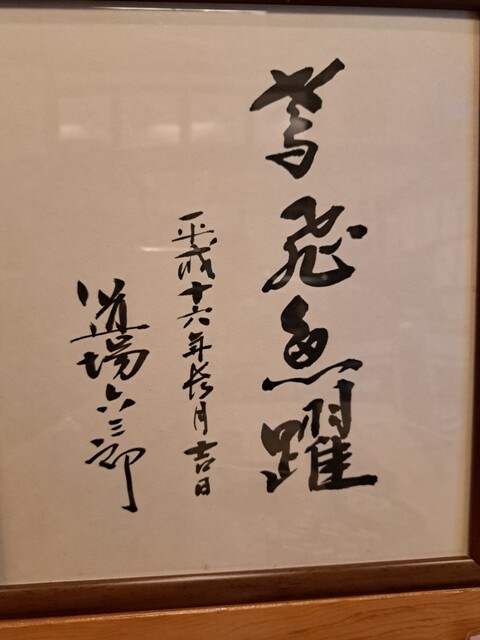 鳶飛魚躍
平成十六年長月吉日
道場六三郎